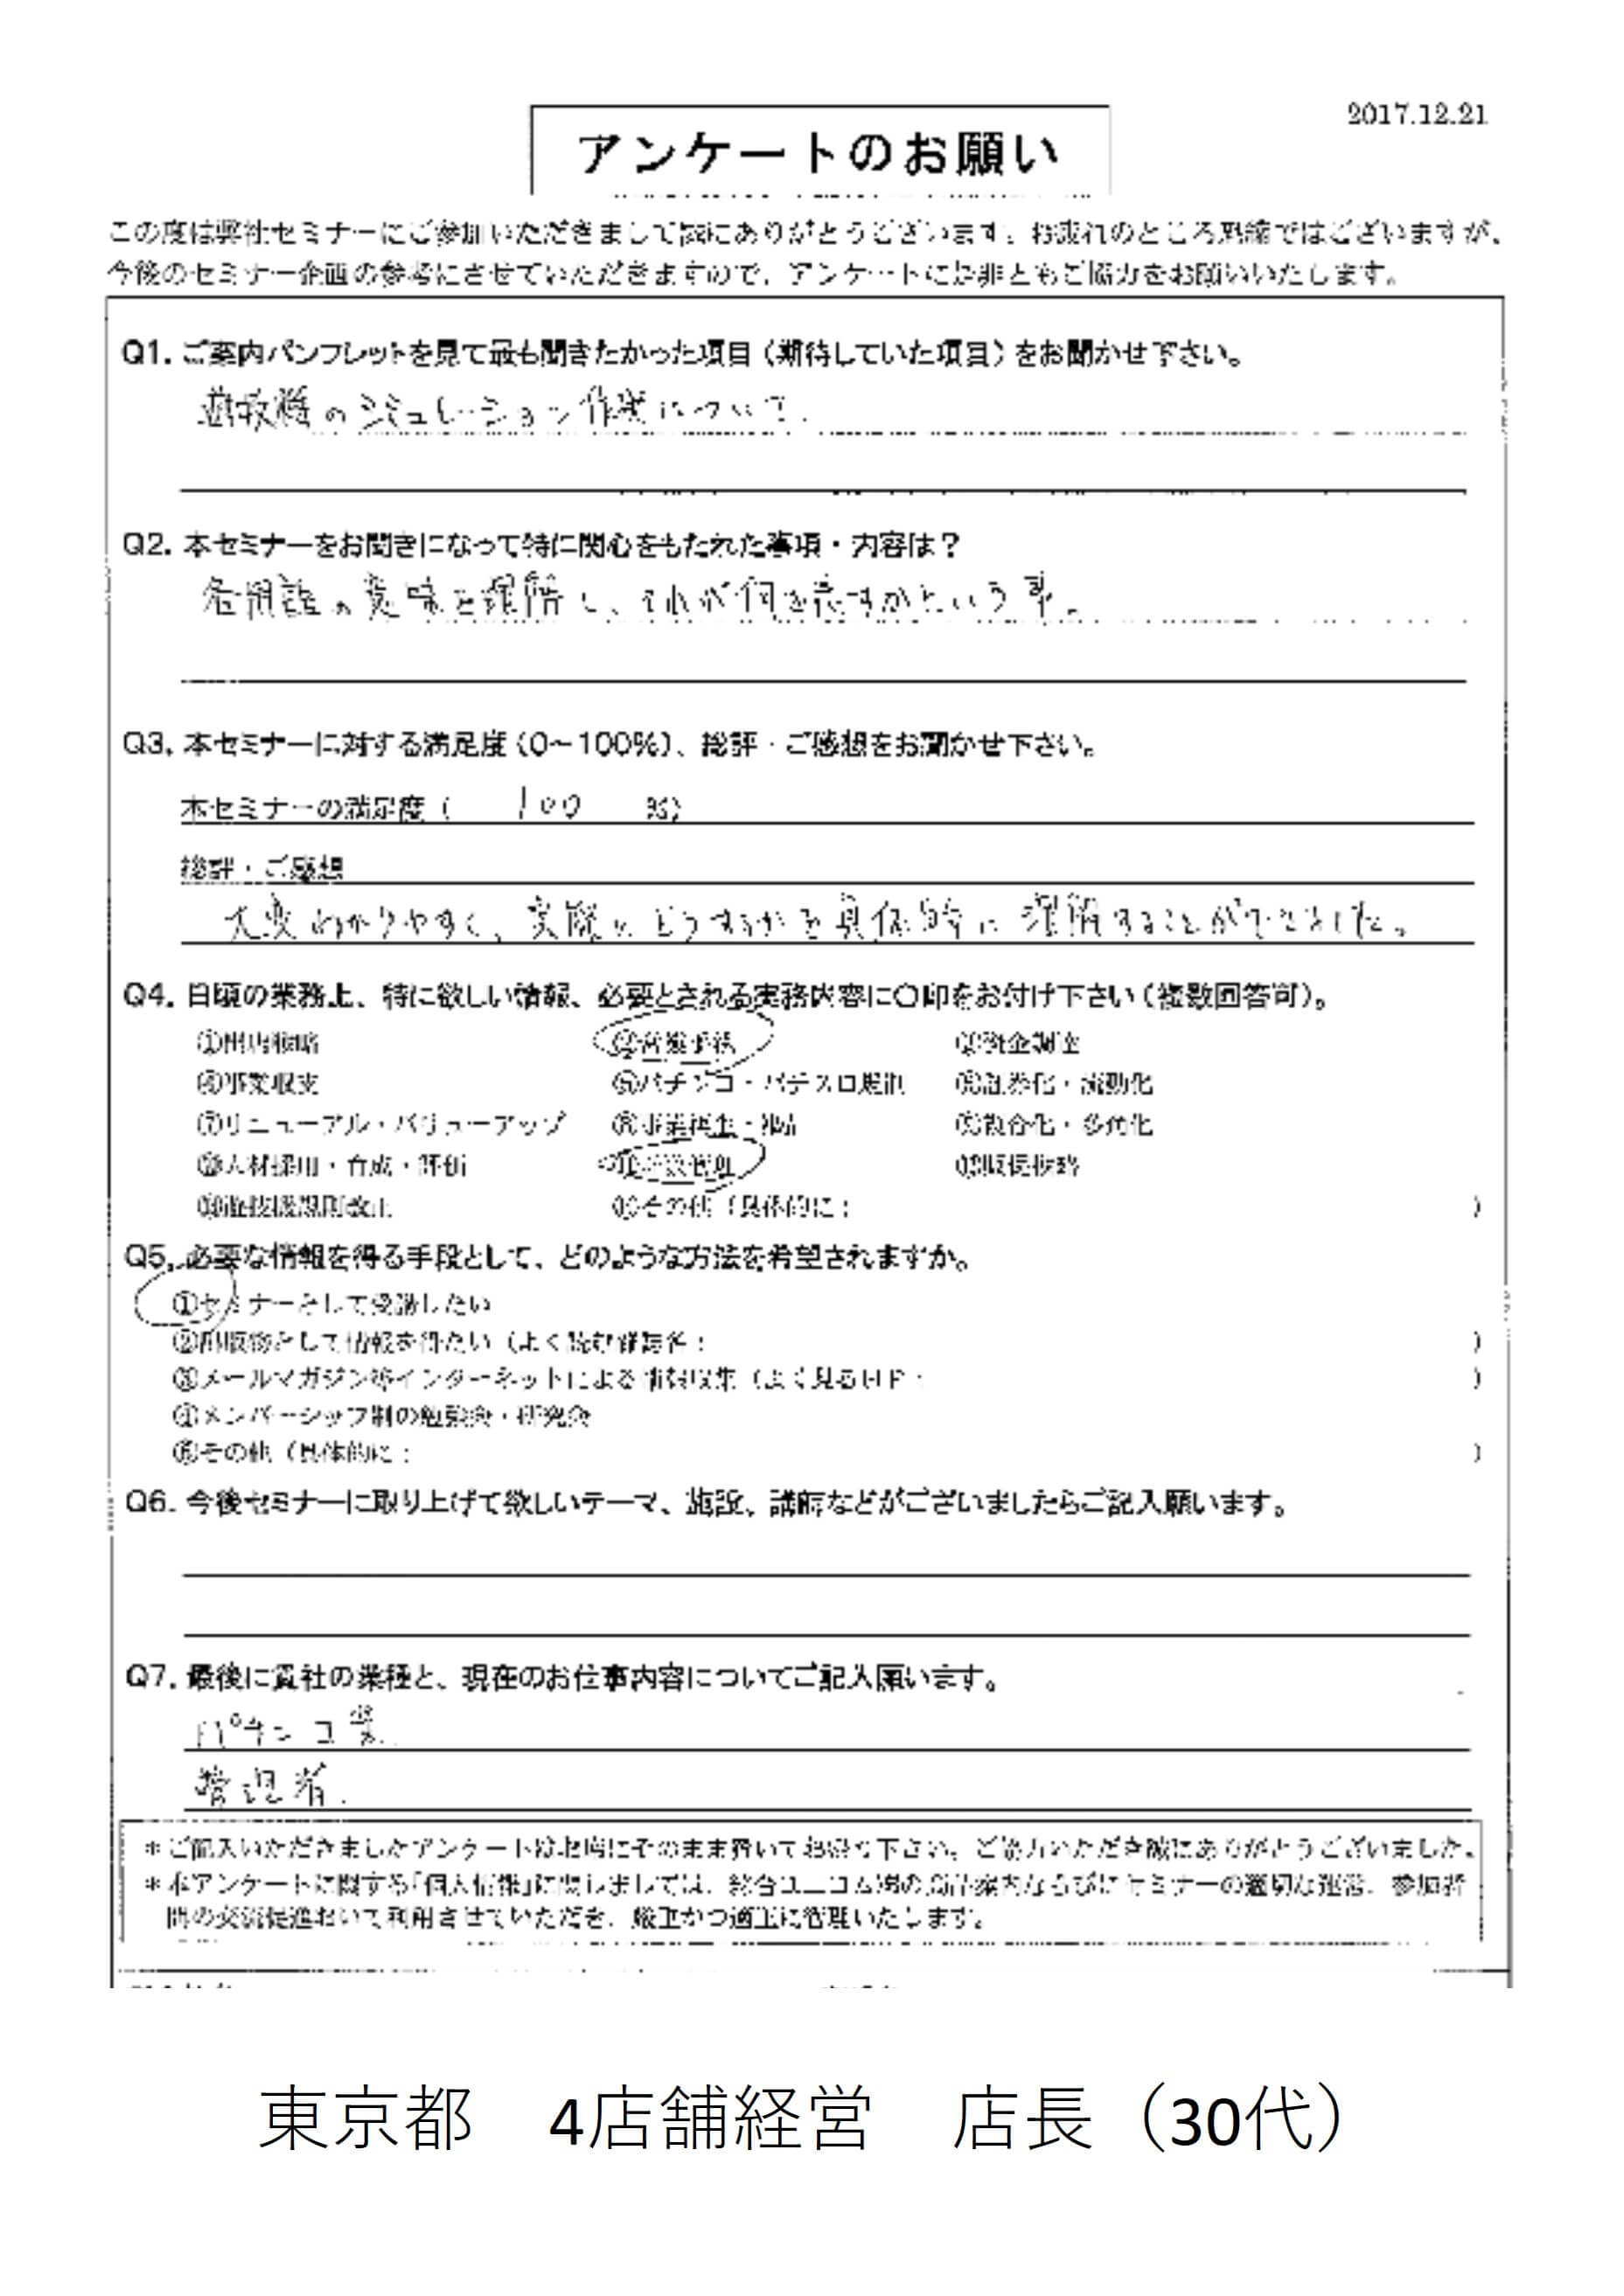 2017.12.21
アンケートのお願い
この度は弊社セミナーにご参加いただきまして誠にありがとうございます。お疲れのところ恐縮ではございますが、
今後のセミナー企画の参考にさせていただきますので、アンケートに是非ともご協力をお願いいたします。
Q1. ご案内パンフレットを見て最も聞きたかった項目（期待していた項目）をお聞かせ下さい。
遊技機のシミュレーション作成について.
Q2. 本セミナーをお聞きになって特に関心をもたれた事項・内容は？
各用語の意味を理解し、それが何を表すかという事。
Q3. 本セミナーに対する満足度（0～100%）、総評・ご感想をお聞かせ下さい。
本セミナーの満足度（ 100 %）
総評・ご感想
大変わかりやすく、実際にどうするかを具体的に理解することができました。
Q4. 日頃の業務上、特に欲しい情報、必要とされる実務内容に○印をお付け下さい（複数回答可）。
①出店戦略 ②営業手法 ③資金調達
④事業収支 ⑤パチンコ・パチスロ規則 ⑥証券化・流動化
⑦リニューアル・バリューアップ ⑧事業再生・ ⑨複合化・多角化
⑩人材採用・育成・評価 ⑪計数管理 ⑫販促戦略
⑬遊技機規則改正 ⑭その他（具体的に： ）
Q5. 必要な情報を得る手段として、どのような方法を希望されますか。
①セミナーとして受講したい
②出版物として情報を得たい（よく読む雑誌等： ）
③メールマガジン等インターネットによる情報収集（よく見るHP： ）
④メンバーシップ制の勉強会・研究会
⑤その他（具体的に： ）
Q6. 今後セミナーに取り上げて欲しいテーマ、施設、講師などがございましたらご記入願います。
Q7. 最後に貴社の業種と、現在のお仕事内容についてご記入願います。
パチンコ業.
管理者.
＊ご記入いただきましたアンケートはお席にそのまま置いてお帰り下さい。ご協力いただき誠にありがとうございました。
＊本アンケートに関する「個人情報」に関しましては、綜合ユニコム㈱の商品案内ならびにセミナーの適切な運営、参加者
間の交流促進において利用させていただき、厳重かつ適正に管理いたします。
東京都　4店舗経営　店長（30代）